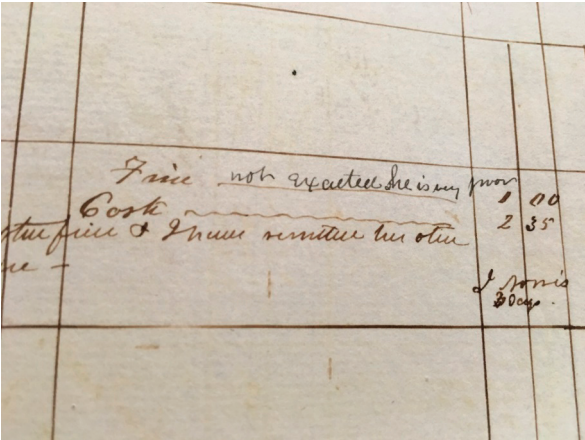 Fine not exacted she is very poor 1 00
Costs 2 35
fine & I have remitted her other
3 Days.